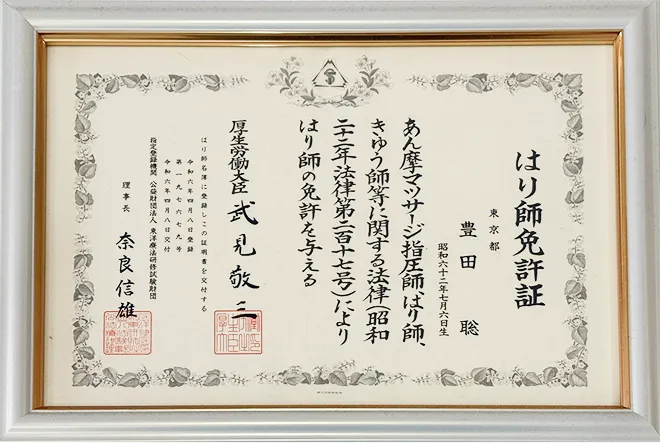 はり師免許証
東京都
豊田 聡
昭和六十二年七月六日生
あん摩マツサージ指圧師、はり師、
きゆう師等に関する法律(昭和
二十二年法律第二百十七号)により
はり師の免許を与える
厚生労働大臣 武見敬三
はり師名簿に登録しこの証明書を交付する
令和六年四月八日登録
第一九七六七九号
令和六年四月八日交付
指定登録機関 公益財団法人 東洋療法研修試験財団
理事長 奈良信雄